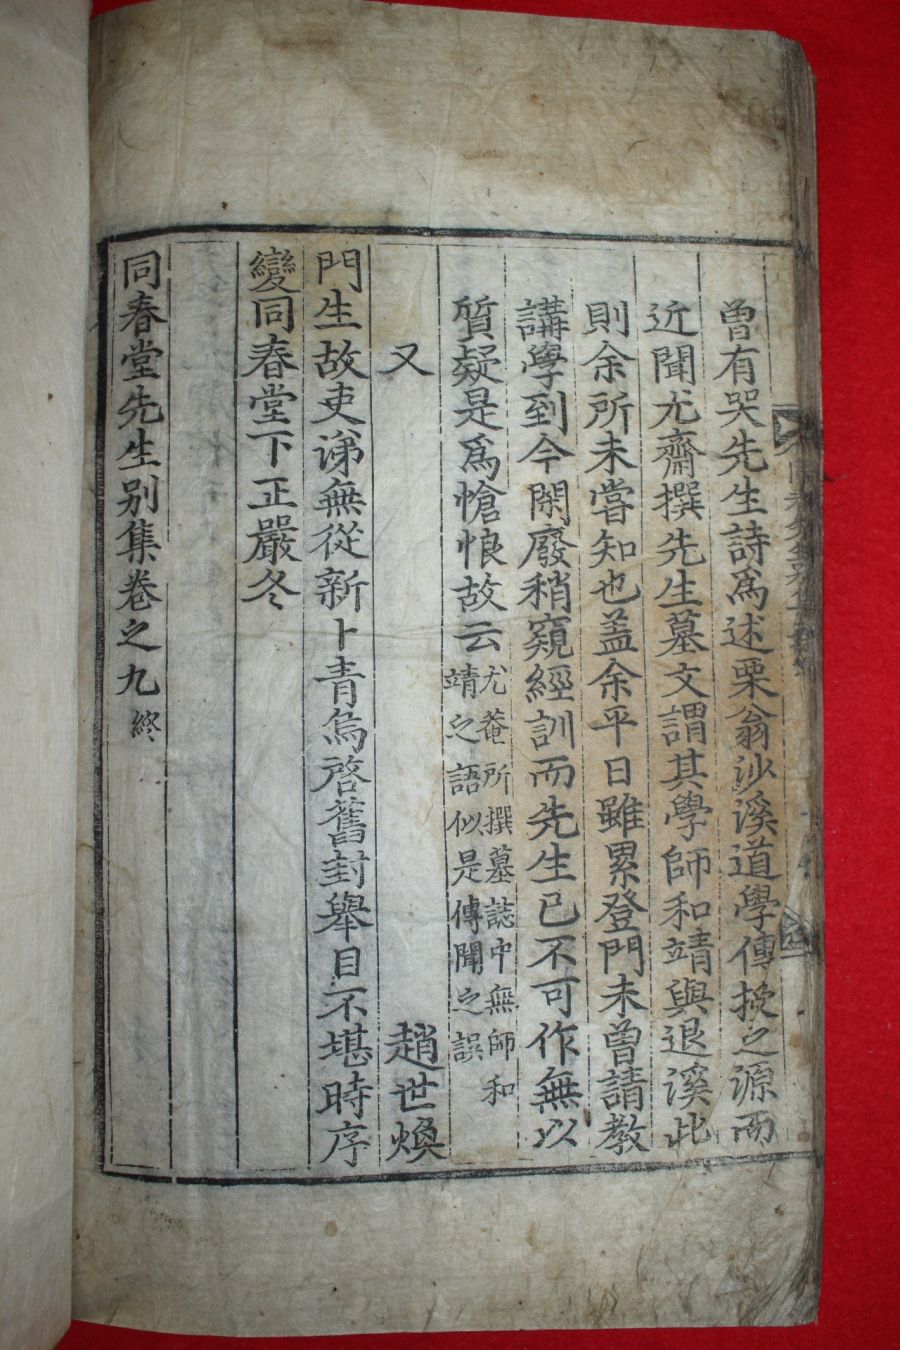 曽有哭先生詩爲述栗翁沙溪道學傳授之源而
近聞尤齋撰先生墓文謂其學師和靖與退溪此
則余所未嘗知也盖余平日雖累登門未曽請教
講學到今閑廢稍窺經訓而先生已不可作無以
質疑是爲愴悢故云尤菴所撰墓誌中無師和
靖之語似是傳聞之誤
又 趙世煥
門生故吏涕無從新卜青烏啓舊封舉目不堪時序
變同春堂下正嚴冬
同春堂先生別集卷之九 終